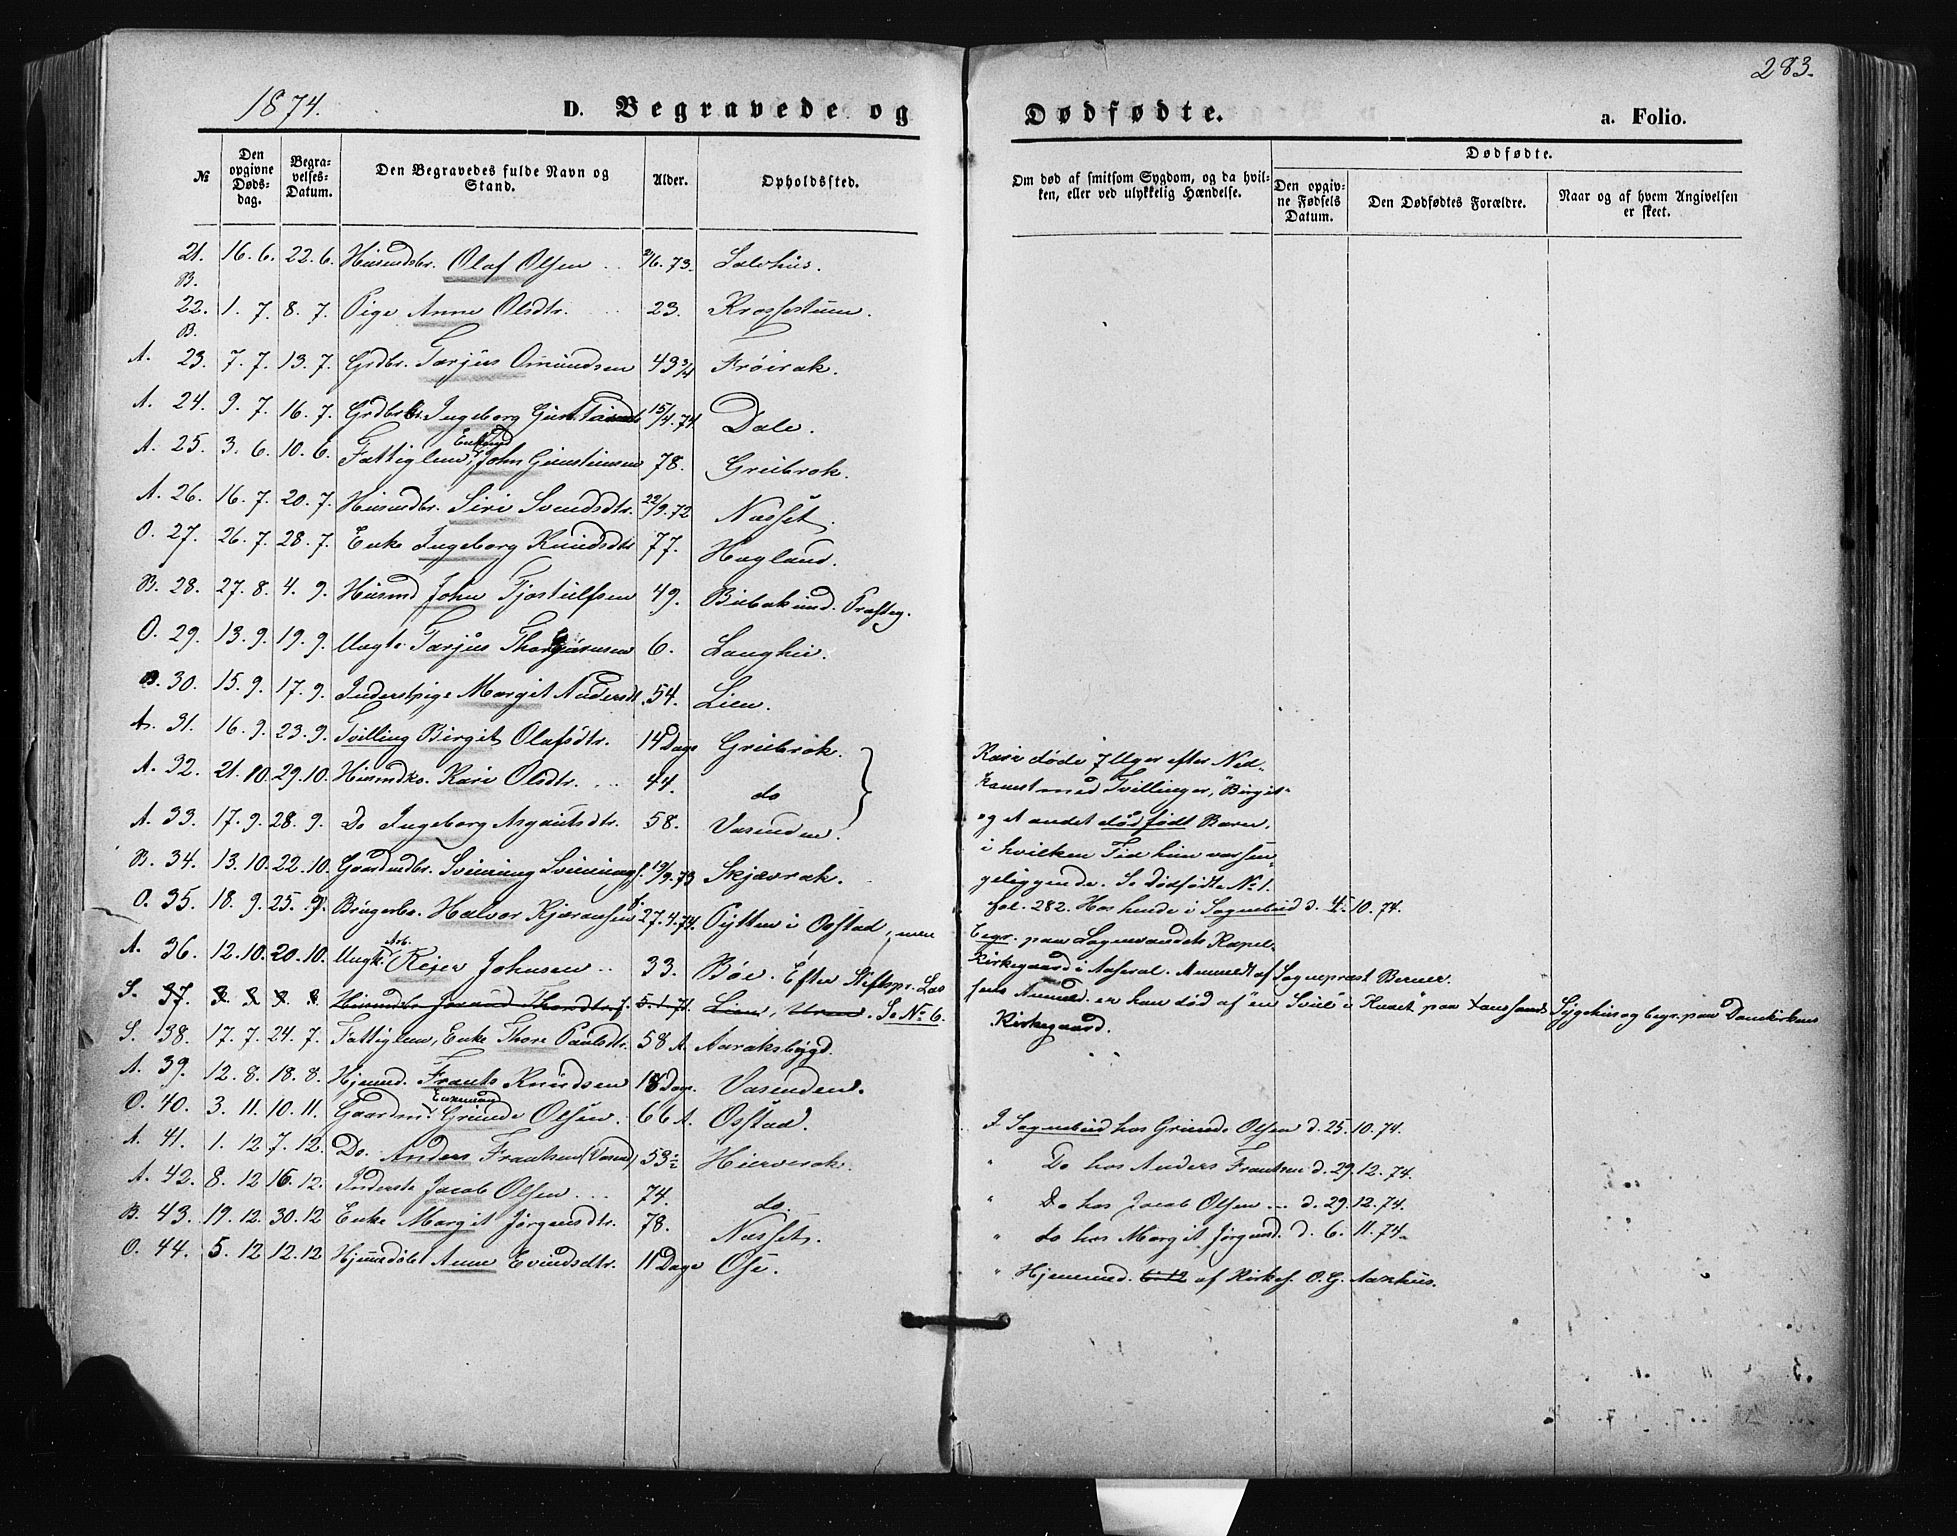 283.
1874.
D. Begravede og
Dødfødte.
a. Folio.
№
Den opgivne Døds-dag.
Begra-velses-Datum.
Den Begravedes fulde Navn og Stand.
Alder.
Opholdssted.
Om død af smitsom Sygdom, og da hvil-ken, eller ved ulykkelig Hændelse.
Dødfødte.
Den opgiv-ne Fødsels Datum.
Den Dødfødtes Forældre.
Naar og af hvem Angivelsen er skeet.
B. 21. 16. 6. 22. 6. Husmdsbr. Olaf Olsen 73. Salvhus.
B. 22. 1. 7. 8. 7. Pige Anne Olsdtr. 23. Krossestuen.
A. 23. 7. 7. 13. 7. Grdbr. Tarjus Omundsen 43 3/4 Frøirak.
A. 24. 9. 7. 16. 7. Ingeborg 15/4. 74 Dale.
A. 25. 3. 6. 10. 6. Fattiglem, Enkemd John Gunstensen 78. Greibrok.
A. 26. 16. 7. 20. 7. Husmdbr. Siri Svendsdtr. 22/9. 72 Næsset.
O. 27. 26. 7. 28. 7. Enke Ingeborg Knudsdtr 77. Hagland.
B. 28. 27. 8. 4. 9. Husmd John Fjostulfsen 49. Præsteg.
O. 29. 13. 9. 19. 9. Ungk. Tarjus 6. Langhei.
B. 30. 15. 9. 17. 9. Inderstpige Margit Andersdt. 54. Lien.
A. 31. 16. 9. 23. 9. Tvilling Birgit Olafsdtr. 14 Dage Greibrok.
A. 32. 21. 10. 29. 10. Husmdko. Kari Olsdtr. 44. do
A. 33. 17. 9. 28. 9. Do Ingeborg Asgautsdtr. 58. Vasenden.
B. 34. 13. 10. 22. 10. Gaardmdbr. Svenning Svennings. 19/9. 73 Skjævrak.
O. 35. 18. 9. 25. 9. Brugerbr. Halvor Kjæransen f. 27. 4. 74. Pytten i Osstad, men
A. 36. 12. 10. 20. 10. Ungk. Arb. Reier Johnsen 33. Bøe. Efter Stiftspr. Las
S. 37. 8. 8. 8. 8. 5. 1. 71. Lien, Uren. Se No 6.
S. 38. 17. 7. 24. 7. Fattiglem, Enke Thore Paulsdtr. 58 A. Aaraksbygd.
A. 39. 12. 8. 18. 8. Hjemmd. Frants Knudsen 18 Dage Vasenden.
O. 40. 3. 11. 10. 11. Gaardm. Enkemand Grunde Olsen. 66 A. Osstad.
A. 41. 1. 12 7. 12. Do. Anders Frantsen (Vasend) 53 1/2 Hierverak.
A. 42. 8. 12 16. 12. Inderste Jacob Olsen 74. do.
B. 43. 19. 12. 30. 12 Enke Margit Jørgensdtr. 78. Næsset.
O. 44. 5. 12 12. 12 Hjemmedøbt Anne Evindsdtr. 11 Dage Ose.
Kari døde 7 Uger efter Ned-
komst med Tvillinger, "Birgit"
og et andet dødfødt Barn.
i hvilken Tid hun var sen-
geliggende. Se Dødfødte No 1.
fol. 282. Hos hende i Sognebud d. 4. 10. 74.
Begr. paa Lognevandets Kapel
Kirkegaard i Aaseral. Anmeldt af Sognepræst Berner.
sens Anmd. er han død af "en Svul" i Knæet" paa Xanssands Sygehus og begr. paa Domkirkens
Kirkegaard.
I Sognebud hos Grunde Olsen d. 25. 10. 74.
" Do hos Anders Frantsen d. 29. 12. 74.
" Do hos Jacob Olsen ... d. 29. 12. 74.
" do hos Margit Jørgensd. d. 6. 11. 74.
" Hjemmed. 6. 12 af Kirkes. O. G. Aarhus.